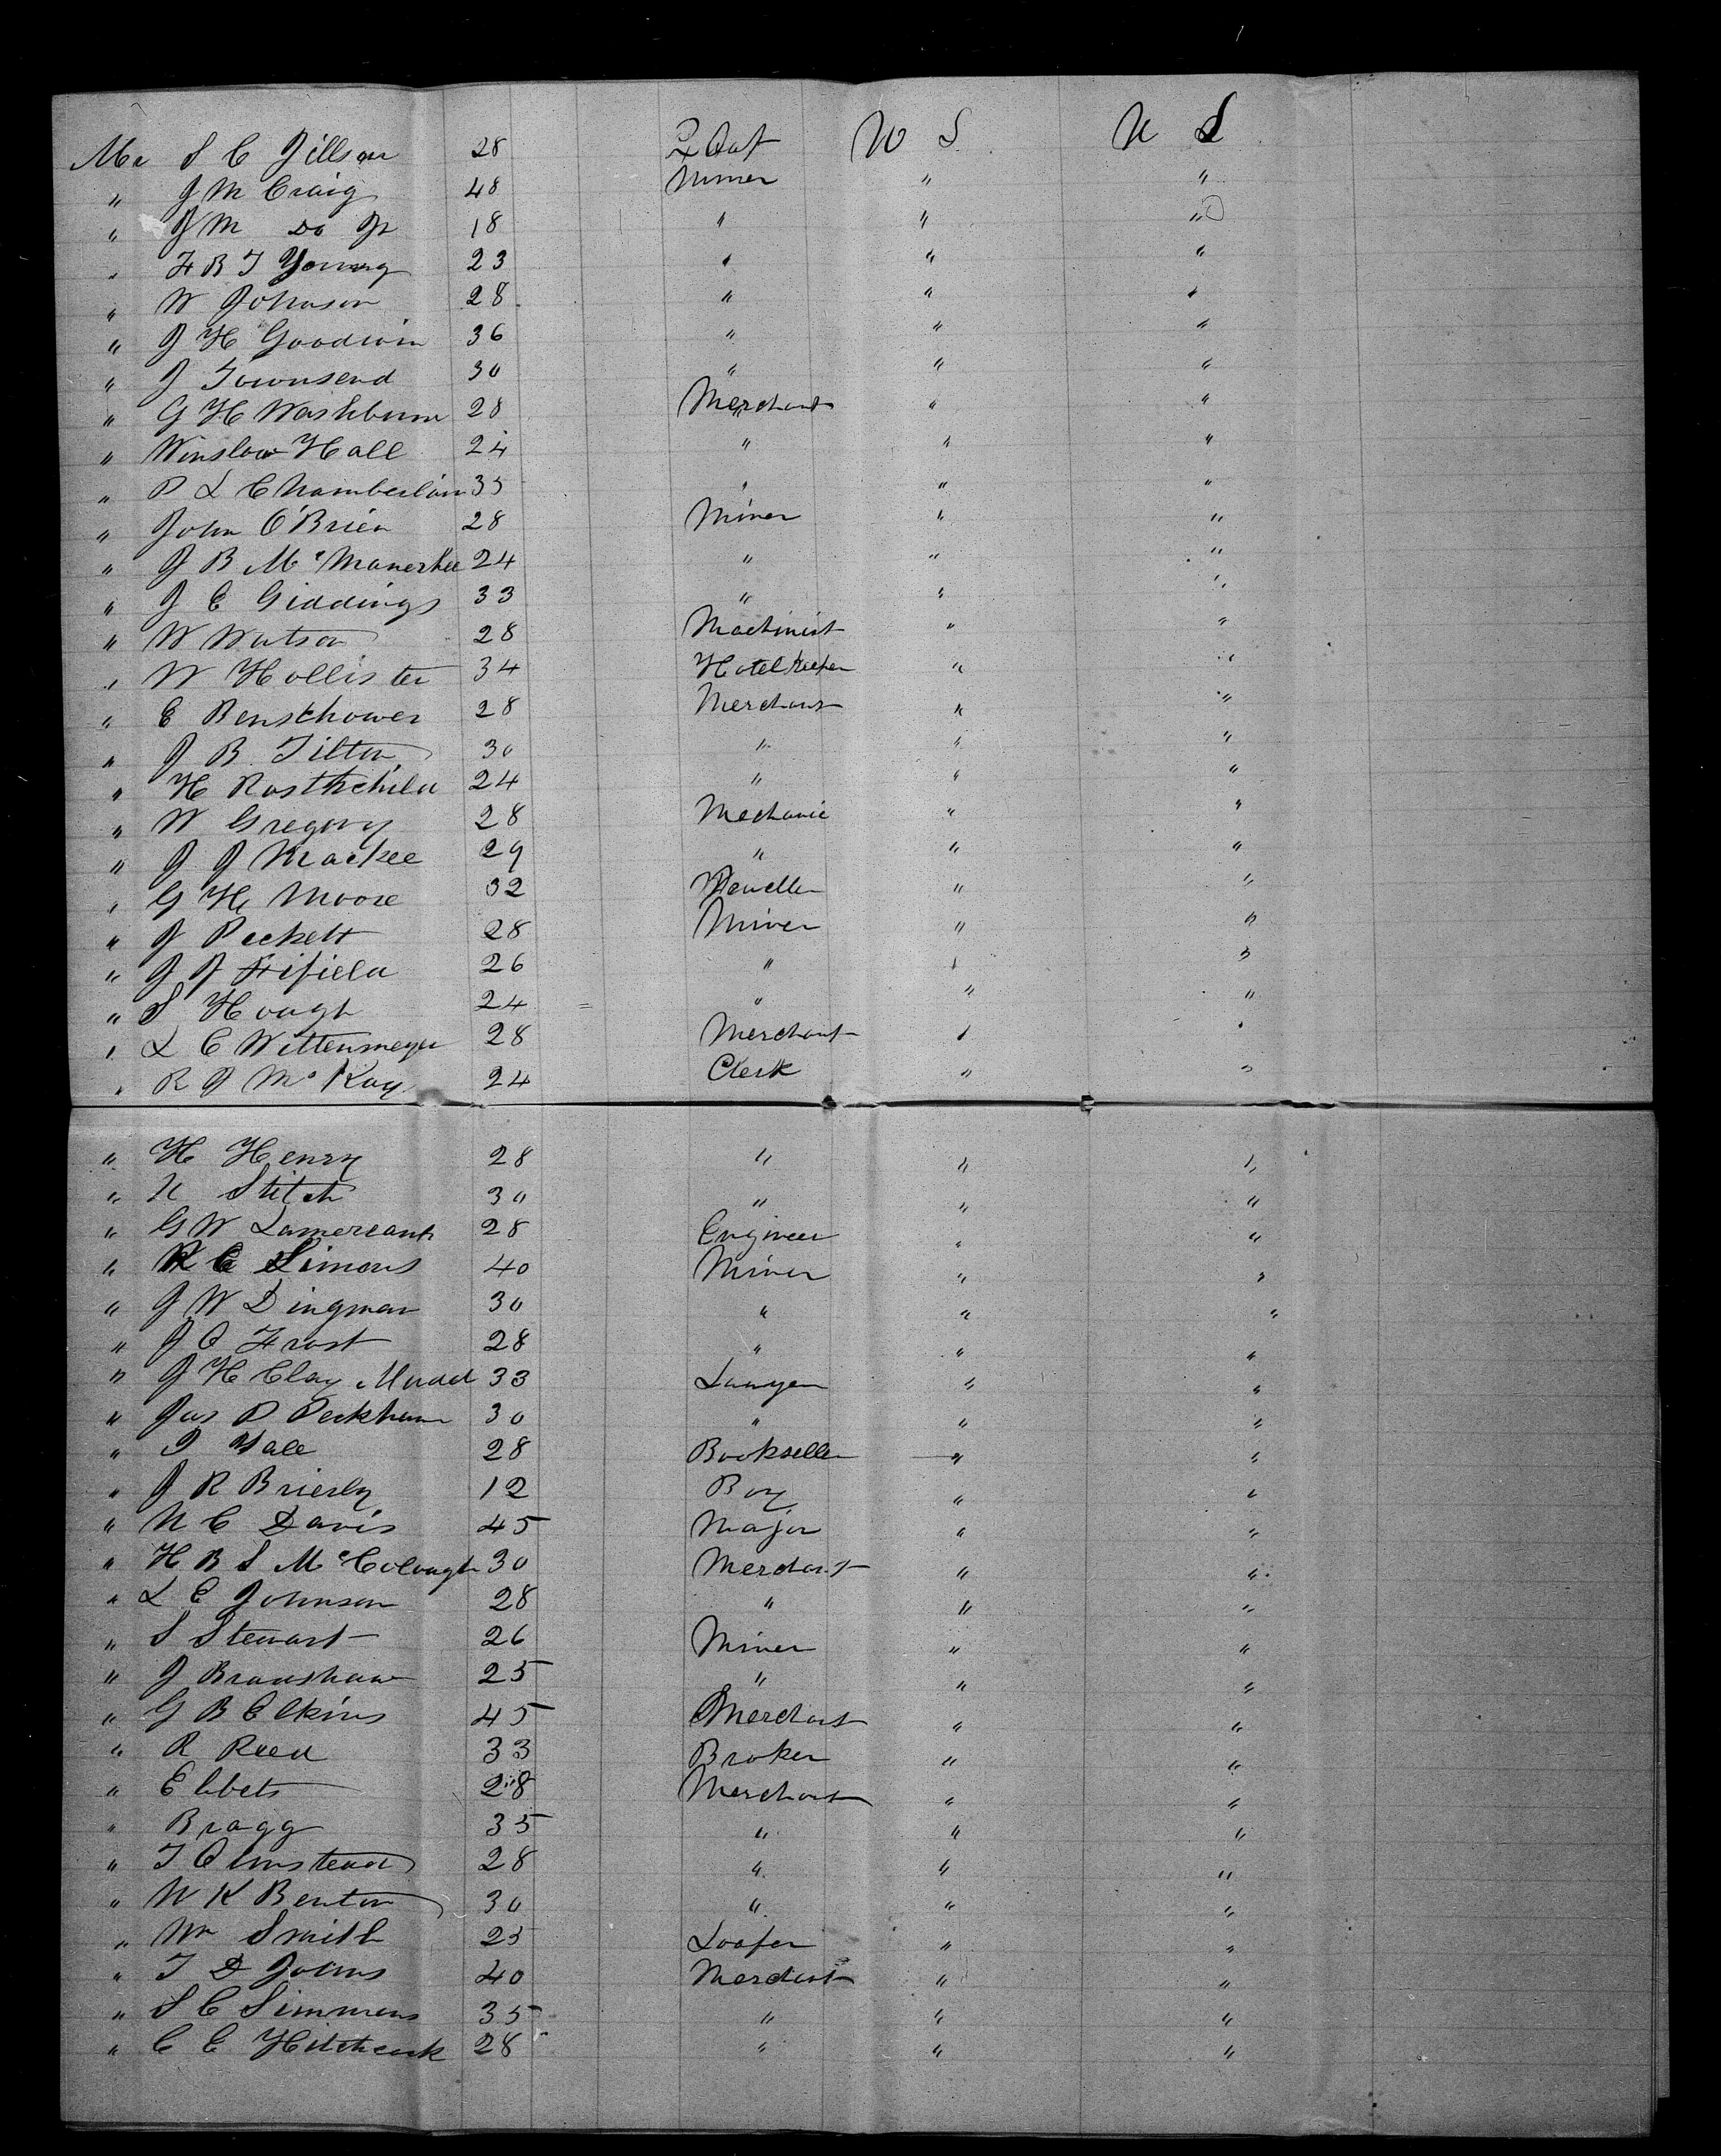 Mr S C Jillson 28 U S U S
" J M Craig 48 Miner " "
" J M Do Jr 18 " " "
" H B T Young 23 " " "
" W Johnson 28 " " "
" J H Goodwin 36 " " "
" J Townsend 30 " " "
" G H Washburn 28 Merchant " "
" Winslow Hall 24 " " "
" P L Chamberlain 35 " " "
" John O'Brien 28 Miner " "
" J B 24 " " "
" J C Giddings 33 " " "
" W Watson 28 Machinist " "
" W Hollister 34 Hotel Keeper " "
" E Benschower 28 Merchant " "
" J B Tilton 30 " " "
" H Rosthchild 24 " " "
" W Gregory 28 Mechanic " "
" J J Mackee 29 " " "
" G H Moore 32 Jeweller " "
" J Peckett 28 Miner " "
" J J Fifield 26 " " "
" S Hough 24 " " "
" L C Wittenmeyer 28 Merchant " "
" R J McKay 24 Clerk " "
" H Henry 28 " " "
" N Stitch 30 " " "
" G W 28 Engineer " "
" R C Simons 40 Miner " "
" J W Dingman 30 " " "
" J O Frost 28 " " "
" J H Clay Mudd 33 Lawyer " "
" Jas P Peckham 30 " " "
" J Yale 28 Bookseller " "
" J R Brierly 12 Boy " "
" N C Davis 45 Major " "
" H B S McColough 30 Merchant " "
" L C Johnson 28 " " "
" S Stewart 26 Miner " "
" J Bradshaw 25 " " "
" G B Elkins 45 Merchant " "
" R Reed 33 Broker " "
" Ebbets 28 Merchant " "
" Bragg 35 " " "
" T Olmstead 28 " " "
" W K Benton 30 " " "
" Wm Smith 25 Loafer " "
" T D Johns 40 Merchant " "
" S C Simmons 35 " " "
" C C Hitchcock 28 " " "